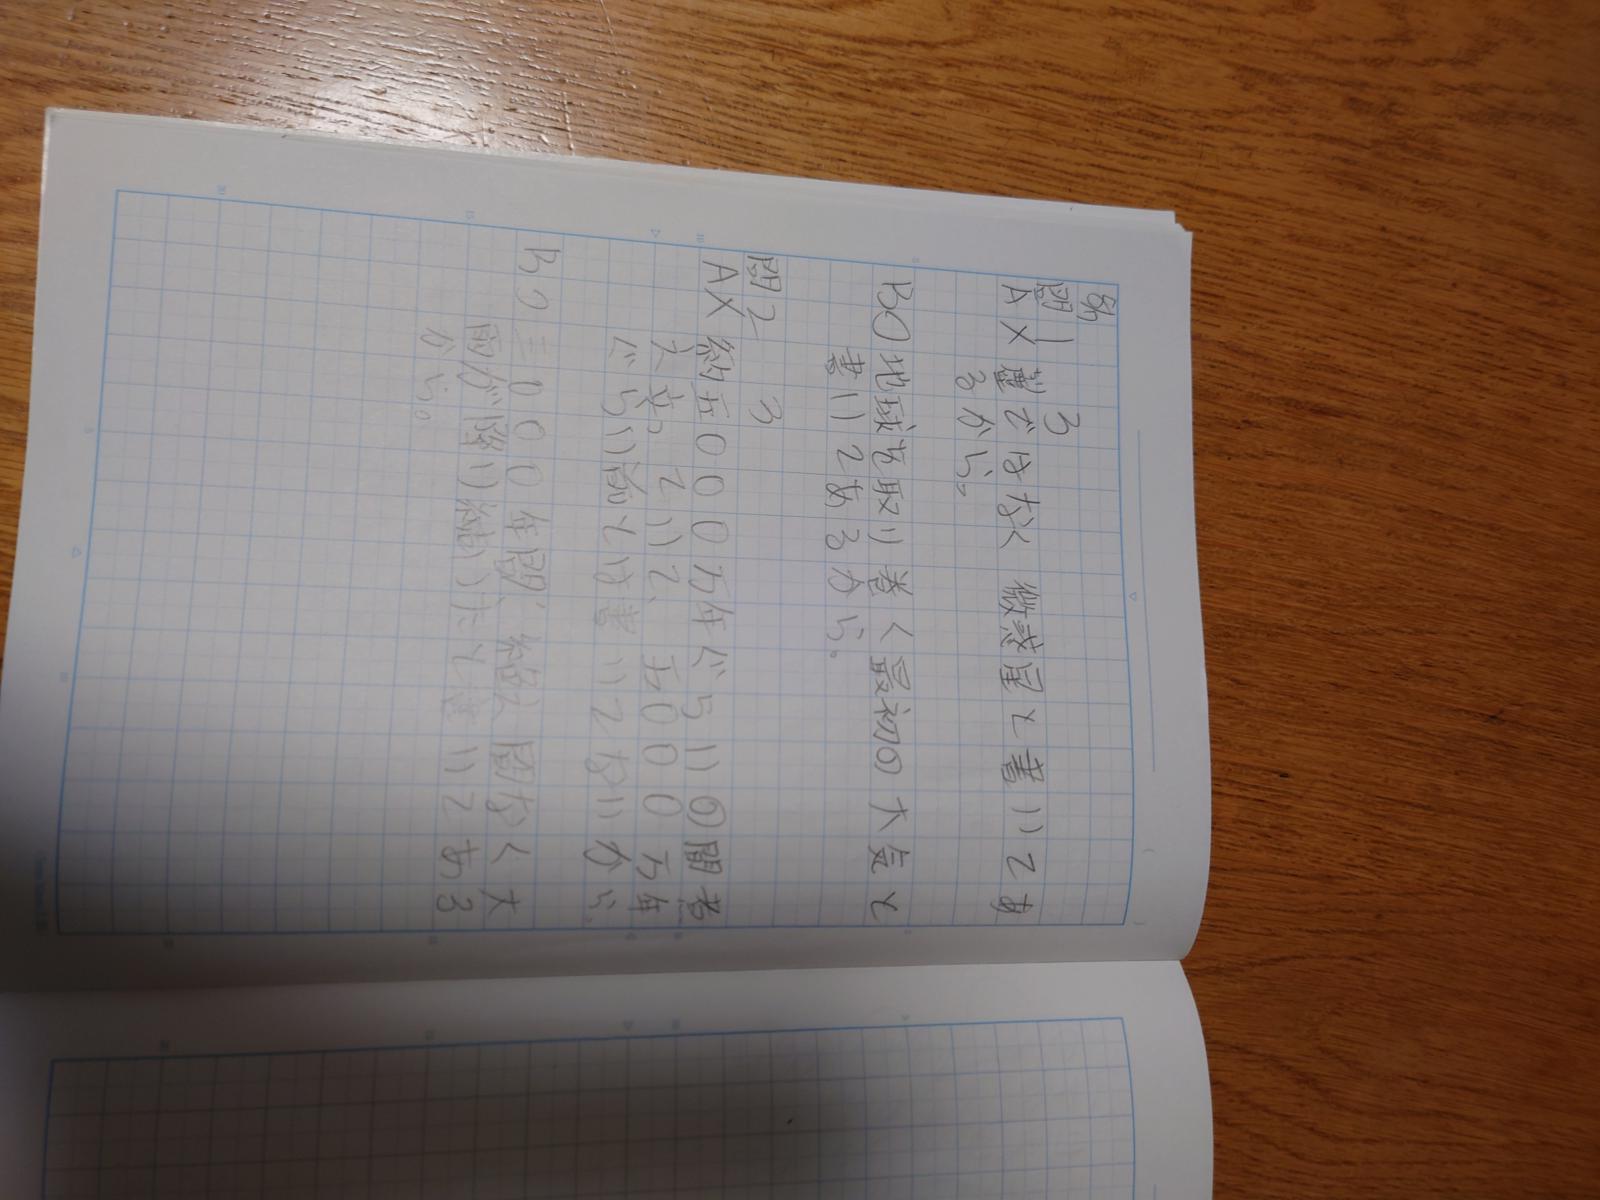 問1 3
A× 塵ではなく 微惑星と書いてあ
るから。
BO地球を取り巻く最初の大気と
書いてあるから。
問2 3
A× 約五000万年ぐらいの間君
えた。ていて、五000万年
ぐらい前とは書いてないから。
BO三000年間、絶え間なく大
雨が降り続いたと書いてある
から。